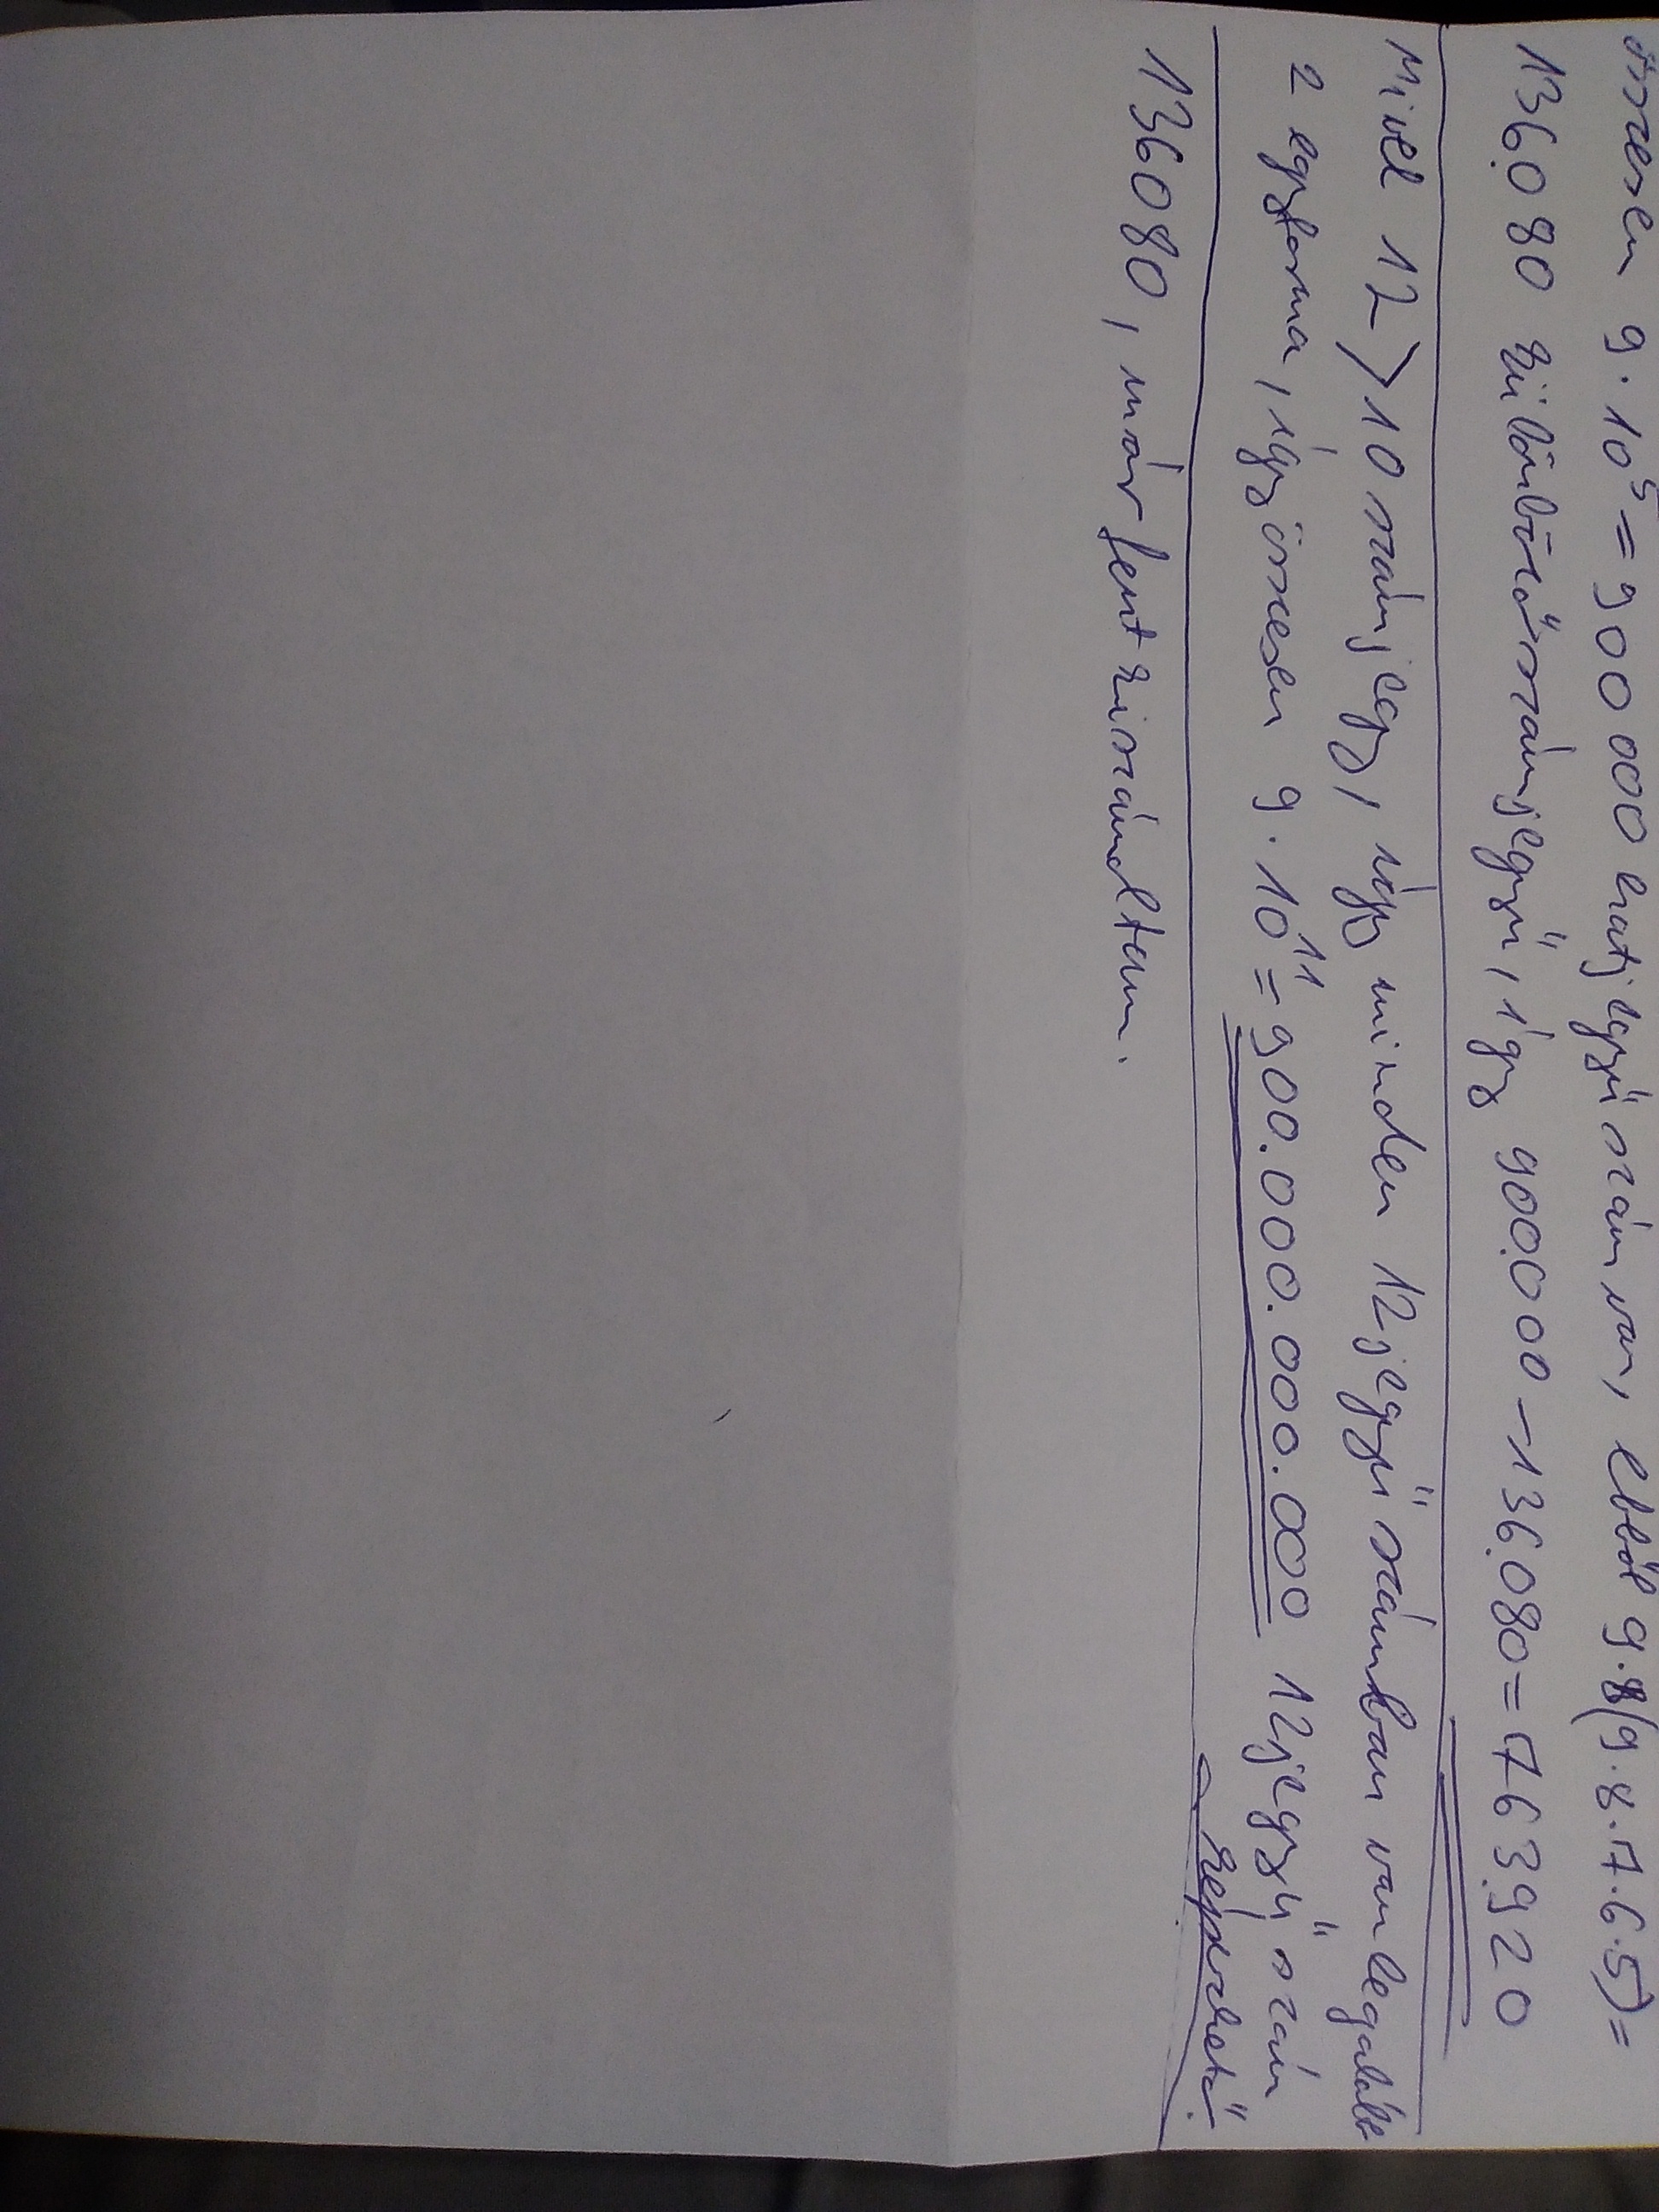 összesen 9·10⁵=900 000 hatjegyű szám van, ebből 9·9·8·7·6·5)=
136.080 különböző számjegyű, így 900.000-136.080=763.920
Mivel 12>10 számjegy, így minden 12jegyű számban van legalább
2 egyforma, így összesen 9·10¹¹=900.000.000.000 12jegyű szám
képezhető.
136080, már fent kiszámoltam.